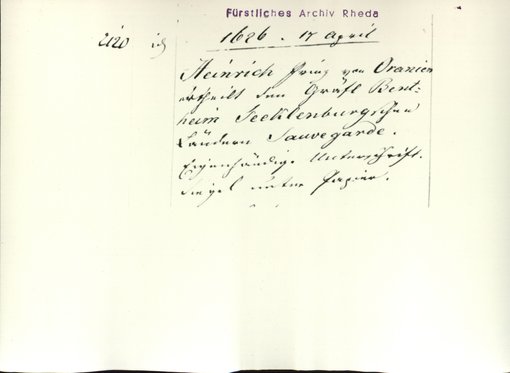 Fürstliches Archiv Rheda
1626. 17 April
Heinrich Prinz von Oranien
ertheilt den Gräfl Bent-
heim Tecklenburgschen
Ländern Sauvegarde.
Eigenhändige Unterschrift.
Siegel unter Papier.